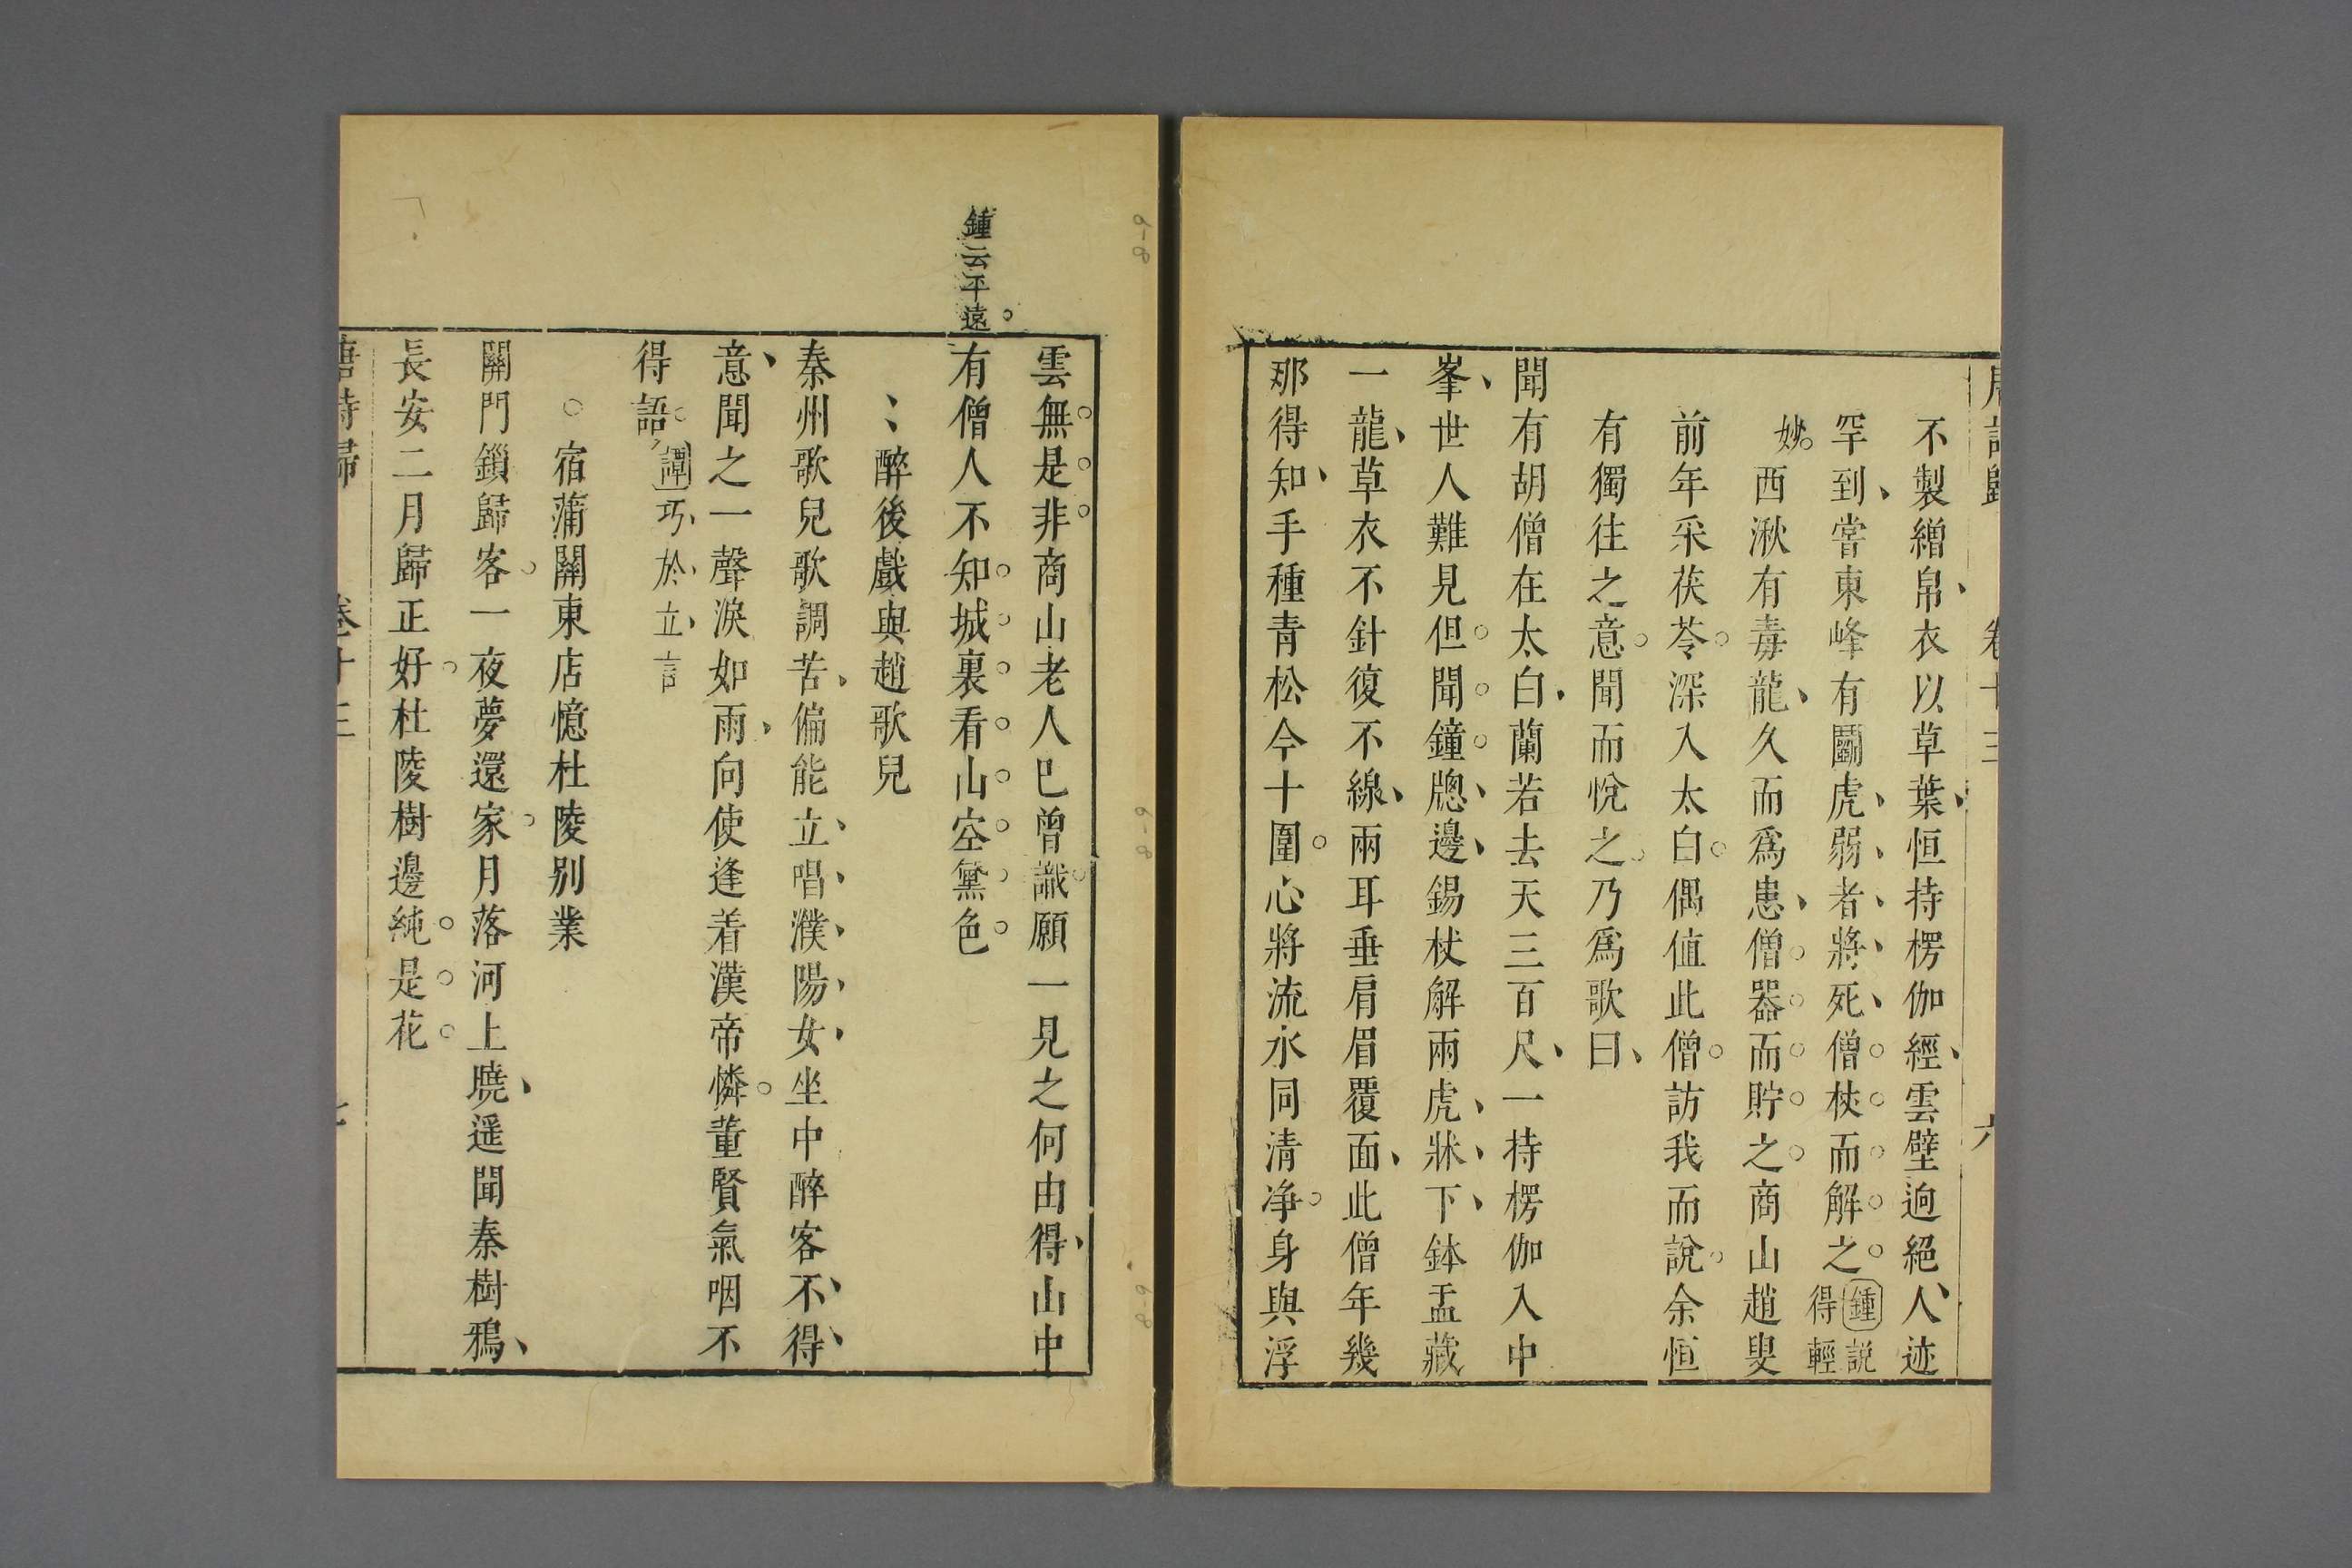 不製繒帛衣以草葉恒持楞伽經雲壁迥絕人迹
罕到嘗東峰有鬭虎弱者將死僧杖而解之鍾説得輕
妙西湫有毒龍久而爲患僧器而貯之商山趙叟
前年采茯苓深入太白偶值此僧訪我而說余恒
有獨往之意聞而悅之乃爲歌曰
聞有胡僧在太白蘭若去天三百尺一持楞伽入中
峯世人難見但聞鐘牕邊錫杖解兩虎牀下鉢盂藏
一龍草衣不針復不線兩耳垂肩眉覆面此僧年幾
那得知手種青松今十圍心將流水同清净身與浮
雲無是非商山老人已曾識願一見之何由得山中
鍾云平遠
有僧人不知城裏看山空黛色
醉後戲與趙歌兒
秦州歌兒歌調苦偏能立唱濮陽女坐中醉客不得
意聞之一聲淚如雨向使逢着漢帝憐董賢氣咽不
得語譚巧於立言
宿蒲關東店憶杜陵别業
關門鎖歸客一夜夢還家月落河上曉遥聞秦樹鴉
長安二月歸正好杜陵樹邊純是花